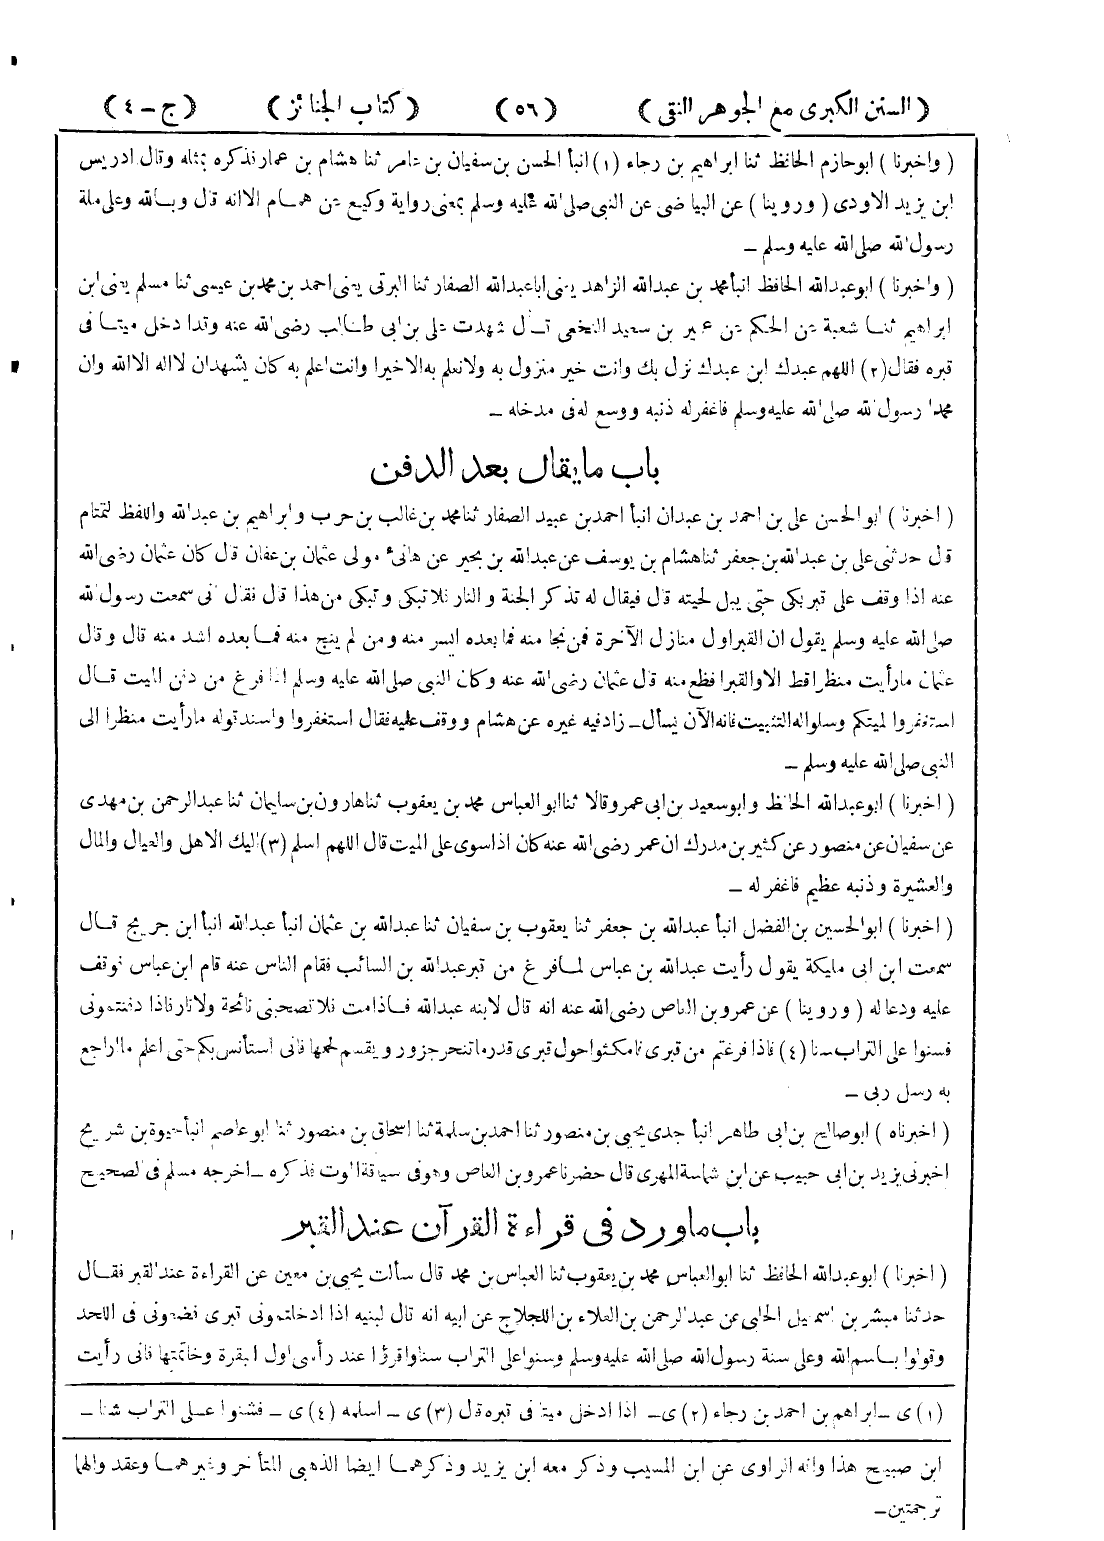 ( السنن الكبرى مع الجوهر النقى ) ( ٥٦ ) ( كتاب الجنائز ) ( ج - ٤ )
( واخبرنا ) ابوحازم الحافظ ثنا ابراهيم بن رجاء (١) انبأ الحسن بن سفيان بن عامر ثنا هشام بن عمار فذكره بمثله وقال ادريس
ابن يزيد الاودى ( وروينا ) عن البياضى عن النبى صلى الله عليه وسلم بمعنى رواية وكيع عن همام الا انه قال وبالله وعلى ملة
رسول الله صلى الله عليه وسلم ــ
( واخبرنا ) ابوعبدالله الحافظ انبأ محمد بن عبدالله الزاهد يعنى اباعبدالله الصفار ثنا البرتى يعنى احمد بن محمد بن عيسى ثنا مسلم يعنى ابن
ابراهيم ثنا شعبة عن الحكم عن عمير بن سعيد النخعى قال شهدت على بن ابى طالب رضى الله عنه وقد ادخل ميتا فى
قبره فقال (٢) اللهم عبدك ابن عبدك نزل بك وانت خير منزول به ولا نعلم به الا خيرا وانت اعلم به كان يشهد ان لا اله الا الله وان
محمدا رسول الله صلى الله عليه وسلم فاغفر له ذنبه ووسع له فى مدخله ــ
باب ما يقال بعد الدفن
( اخبرنا ) ابو الحسن على بن احمد بن عبدان انبأ احمد بن عبيد الصفار ثنا محمد بن غالب بن حرب وابراهيم بن عبدالله واللفظ لتمتام
قال حدثنى على بن عبدالله بن جعفر ثنا هشام بن يوسف عن عبدالله بن بحير عن هانئ مولى عثمان بن عفان قال كان عثمان رضى الله
عنه اذا وقف على قبر بكى حتى يبل لحيته قال فيقال له تذكر الجنة والنار فلا تبكى وتبكى من هذا قال فقال انى سمعت رسول الله
صلى الله عليه وسلم يقول ان القبر اول منازل الآخرة فمن نجا منه فما بعده ايسر منه ومن لم ينج منه فما بعده اشد منه قال وقال
عثمان ما رأيت منظرا قط الا والقبر افظع منه قال عثمان رضى الله عنه وكان النبى صلى الله عليه وسلم اذا فرغ من دفن الميت قال
استغفروا لميتكم وسلوا له التثبيت فانه الآن يسأل ــ زاد فيه غيره عن هشام ووقف عليه فقال استغفروا واسند قوله ما رأيت منظرا الى
النبى صلى الله عليه وسلم ــ
( اخبرنا ) ابوعبدالله الحافظ وابوسعيد بن ابى عمرو قالا ثنا ابو العباس محمد بن يعقوب ثنا هارون بن سليمان ثنا عبدالرحمن بن مهدى
عن سفيان عن منصور عن كثير بن مدرك ان عمر رضى الله عنه كان اذا سوى على الميت قال اللهم اسلم (٣) اليك الاهل والعيال والمال
والعشيرة وذنبه عظيم فاغفر له ــ
( اخبرنا ) ابوالحسين بن الفضل انبأ عبدالله بن جعفر ثنا يعقوب بن سفيان ثنا عبدالله بن عثمان انبأ عبدالله انبأ ابن جريج قال
سمعت ابن ابى مليكة يقول رأيت عبدالله بن عباس لما فرغ من قبر عبدالله بن السائب فقام الناس عنه قام ابن عباس فوقف
عليه ودعا له ( وروينا ) عن عمرو بن العاص رضى الله عنه انه قال لابنه عبدالله فاذا مت فلا تصحبنى نائحة ولا نار فاذا دفنتمونى
فسنوا على التراب سنا (٤) فاذا فرغتم من قبرى فامكثوا حول قبرى قدر ما تنحر جزور ويقسم لحمها فانى استأنس بكم حتى اعلم ماا راجع
به رسل ربى ــ
( اخبرناه ) ابوصالح بن ابى طاهر انبأ جدى يحيى بن منصور ثنا احمد بن سلمة ثنا اسحاق بن منصور ثنا ابو عاصم انبأ حيوة بن شريح
اخبرنى يزيد بن ابى حبيب عن ابن شماسة المهرى قال حضرنا عمرو بن العاص وهو فى سياقة الموت فذكره ــ اخرجه مسلم فى الصحيح
باب ما ورد فى قراءة القرآن عند القبر
( اخبرنا ) ابوعبدالله الحافظ ثنا ابوالعباس محمد بن يعقوب ثنا العباس بن محمد قال سألت يحيى بن معين عن القراءة عند القبر فقال
حدثنا مبشر بن اسمعيل الحلبى عن عبدالرحمن بن العلاء بن اللجلاج عن ابيه انه قال لبنيه اذا ادخلتمونى قبرى فضعونى فى اللحد
وقولوا باسم الله وعلى سنة رسول الله صلى الله عليه وسلم وسنوا على التراب سنا واقرؤا عند رأسى اول البقرة وخاتمتها فانى رأيت
(١) ى ــ ابراهيم بن احمد بن رجاء (٢) ى ــ اذا ادخل ميتا فى قبره قال (٣) ى ــ اسلمه (٤) ى ــ فشنوا على التراب شنا ــ
ابن صبيح هذا وانه الراوى عن ابن المسيب وذكر معه ابن يزيد وذكرهما ايضا الذهبى المتأخر وغيرهما وعقد والهما
ترجمتين ــ